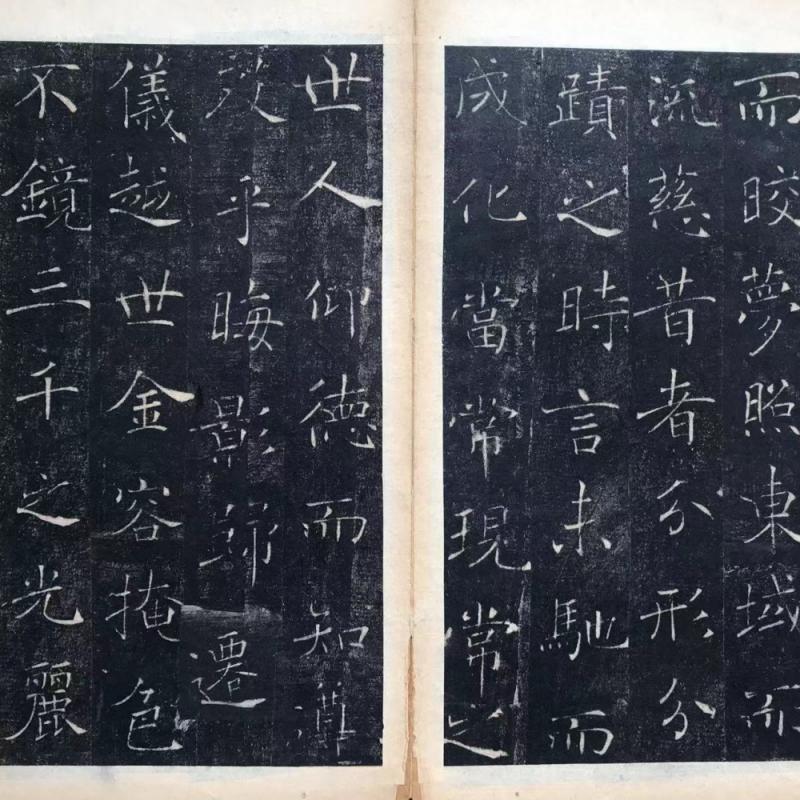 而晈夢照東域而
流慈昔者分形分
蹟之時言未馳而
成化當常現常之
世人仰德而知遵
及乎晦影歸遷
儀越世金容掩色
不鏡三千之光麗